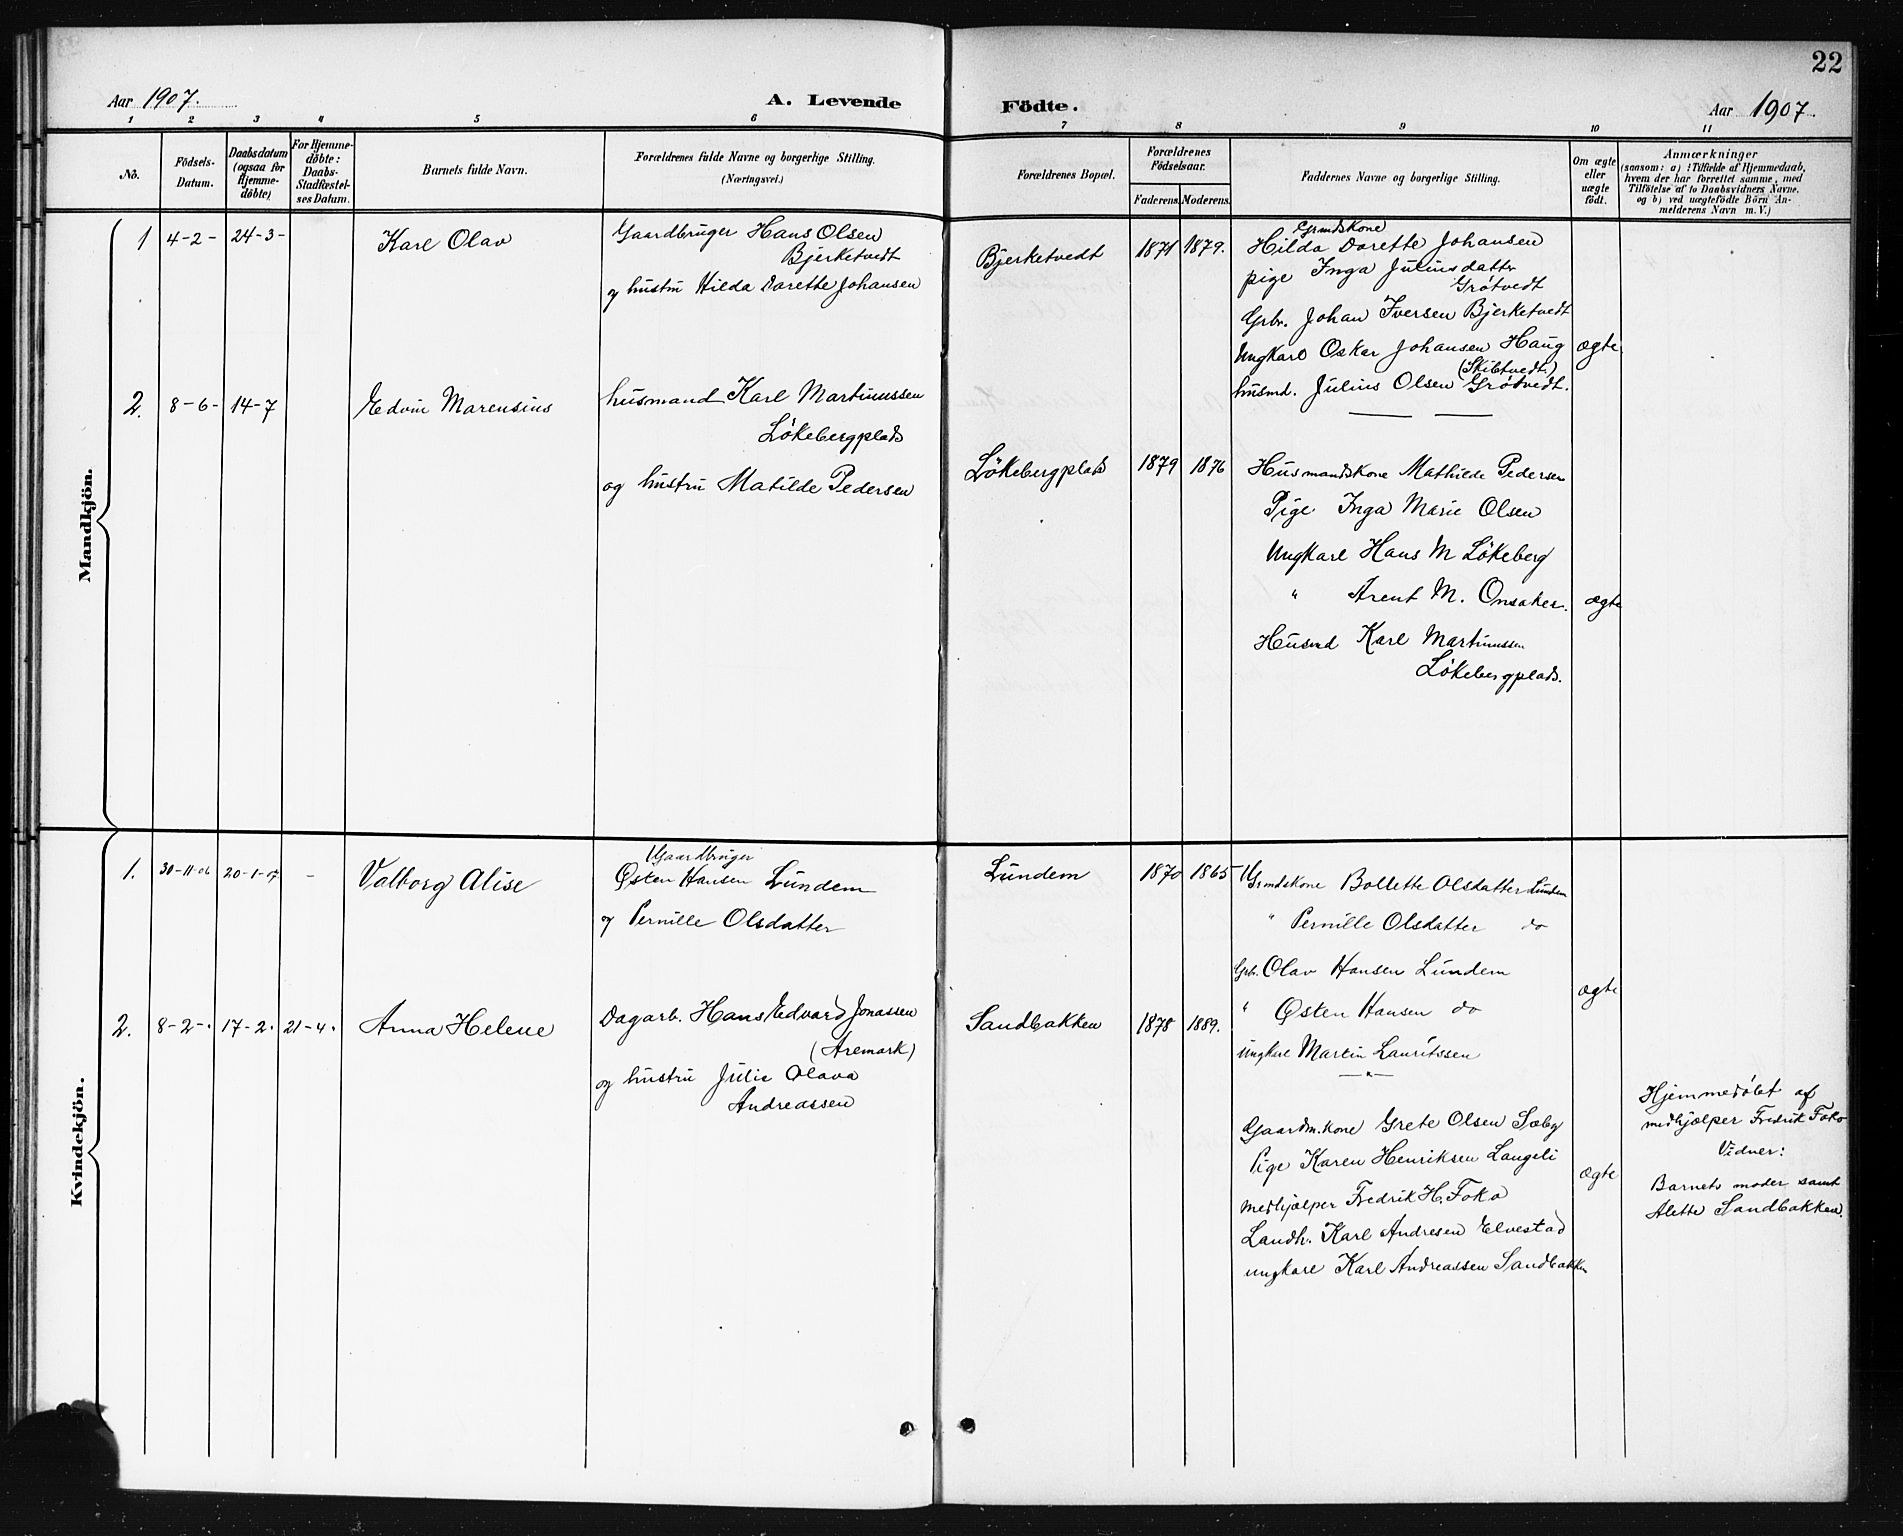 22
Aar 1907.
A. Levende
Födte.
Aar 1907.
1 2 3 4 5 6 7 8 9 10 11
No.
Födsels-
Datum.
Daabsdatum
(ogsaa for
Hjemme-
döbte)
For Hjemme-
döbte:
Daabs-
Stadfæstel-
ses Datum.
Barnets fulde Navn.
Forældrenes fulde Navne og borgerlige Stilling.
(Næringsvei.)
Forældrenes Bopæl.
Forældrenes
Födselsaar.
Faderens. Moderens.
Faddernes Navne og borgerlige Stilling.
Om ægte
eller
uægte
födt.
Anmærkninger
(saasom: a) i Tilfælde af Hjemmedaab,
hvem der har forrettet samme, med
Tilföielse af to Daabsvidners Navne.
og b) ved uægtefödte Börn An-
melderens Navn m. V.)
Mandkjön.
1 4-2- 24-3- Karl Olav
Gaardbruger Hans Olsen
Bjerketvedt
og hustru Hilda Dorette Johansen
Bjerketvedt 1871 1879.
Grmdskone
Hilda Dorette Johansen
pige Inga Juliusdatter
Grötvedt
Grbr. Johan Iversen Bjerketvedt
Ungkarl Oskar Johansen Haug
(Skibtvedt)
husmd. Julius Olsen Grötvedt.
ægte
2. 8-6- 14-7 Edvin Marensius
husmand Karl Martinussen
Lökebergplads
og hustru Matilde Pedersen
Lökebergplads 1879 1876
Husmandskone Mathilde Pedersen
Pige Inga Marie Olsen
Ungkarl Hans M Lökeberg
" Arent M. Onsaker.
Husmd Karl Martinussen
Lökebergplads.
ægte
Kvindekjön.
1. 30-11-06 20-1-07 - Valborg Alise
Gaardbruger
Østen Hansen Lundem
og Pernille Olsdatter
Lundem 1870 1865
Grmdskone Bollette Olsdatter Lundem
" Pernille Olsdatter do
Grb. Olav Hansen Lundem
" Østen Hansen do
ungkarl Martin Lauritssen
"
ægte
2. 8-2-. 17-2. 21-4. Anna Helene
Dagarb. Hans Edvard Jonassen
(Aremark)
og hustru Julie Olava
Andreassen
Sandbakken 1878 1889.
Gaardm.kone Grete Olsen Sæby
Pige Karen Henriksen Langeli
medhjælper Fredrik H. Foko
Landh. Karl Andresen Elvestad
ungkarl Karl Andreassen Sandbakken
ægte
Hjemmedöbt af
medhjælper Fredrik Foko
Vidner:
Barnets moder samt
Alette Sandbakken.